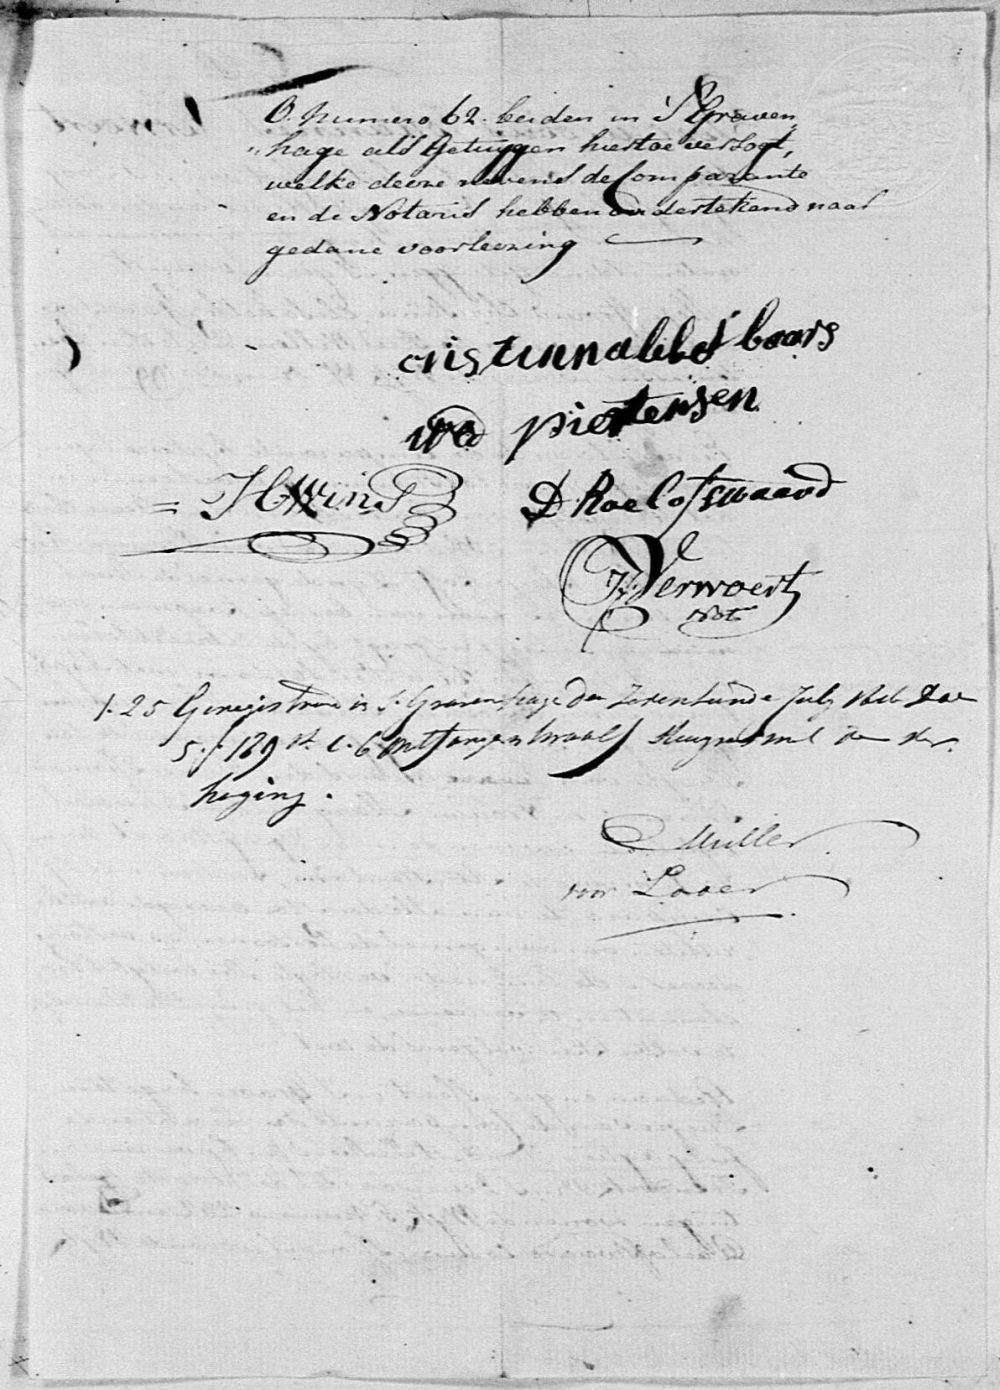 O. Numero 62. beiden in 'S Graven,
"hage als Getuygen hiertoe versogt,
welke deeze nevens de Comparante
en de Notaris hebben ondertekend naar
gedane voorleezing
cristinna boars
wed pietersen
= HWins D Roelofswaard
Verwoert
Not
1.25 Geregistreerd in S. Gravenhage den Zeventiende July Deel
5. f. 189 v. c. 6. ontfangen
hoging.
Muller
voor